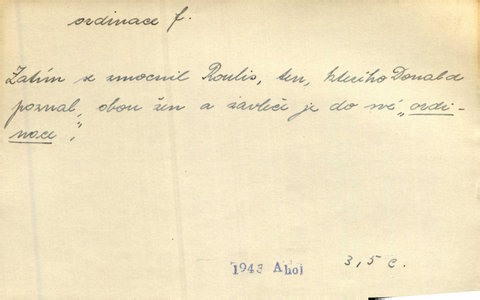 ordinace f.
Zatím se zmocnil Roulis, ten, kterého Donald
poznal, obou žen a zavlečí je do své „ordi-
nace“.
1943 Ahoj
3, 5 c.